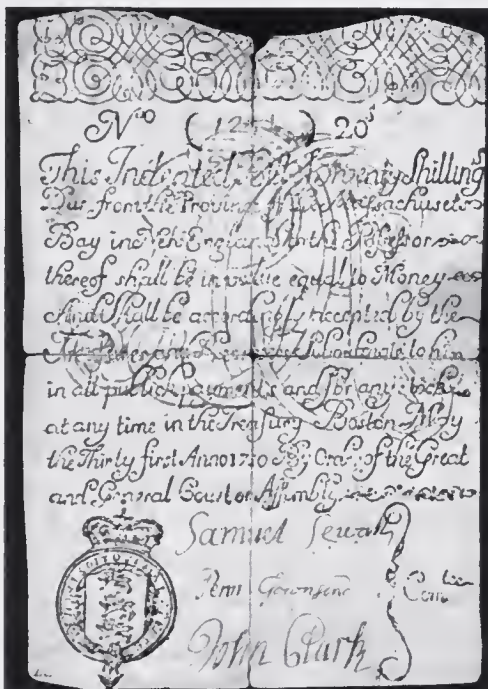 No (12 ) 20s
This Indented Bill of Twenty Shillings
Due from the Province of the Massachusets
Bay in New England to the Possessor
thereof shall be in value equal to Money
And Shall be accordingly Accepted by the
Treasurer and Receivers Subordinate to him
in all publick payments and for any Stock
at any time in the Treasury Boston May
the Thirty first Anno 1710 By Order of the Great
and General Court or Assembly
Samuel Sewall
Penn Townsend Comtee
John Clark